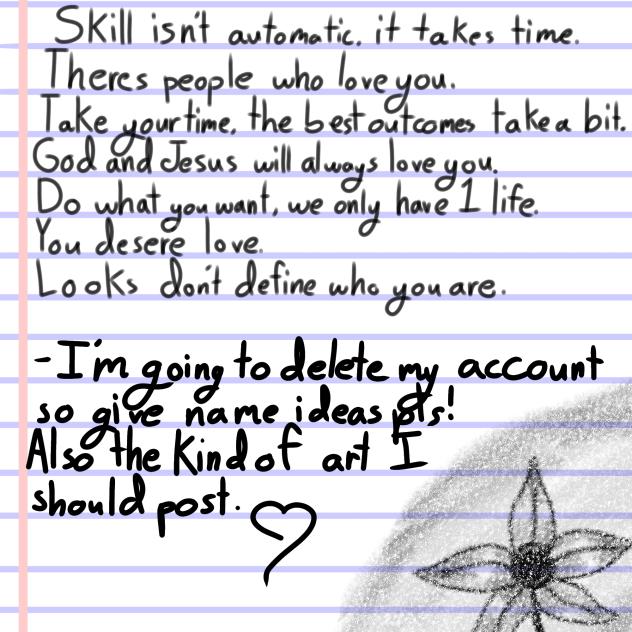 Skill isn't automatic, it takes time.
Theres people who love you.
Take your time, the best outcomes take a bit.
God and Jesus will always love you.
Do what you want, we only have 1 life.
You desere love.
Looks don't define who you are.
-I'm going to delete my account
so give name ideas pls!
Also the kind of art I
should post.